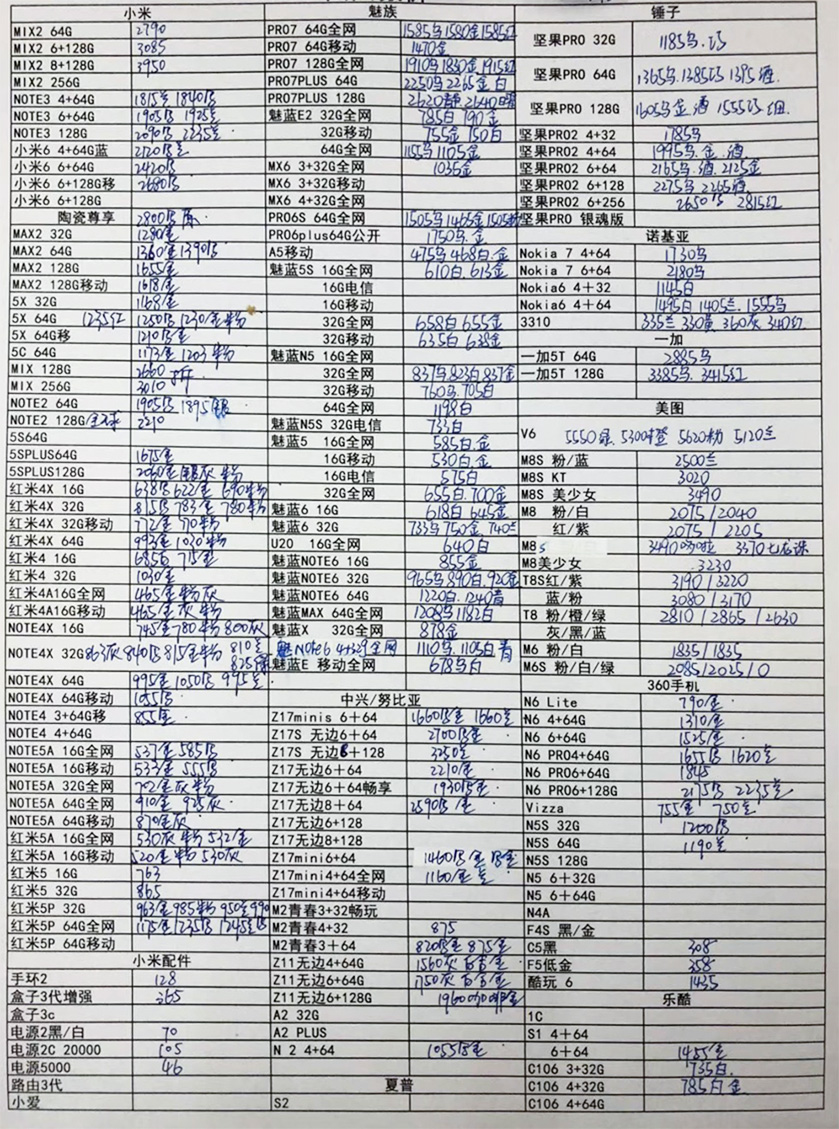 小米
MIX2 64G 2790
MIX2 6+128G 3085
MIX2 8+128G 3950
MIX2 256G
NOTE3 4+64G 1815 1840
NOTE3 6+64G 1905 1925
NOTE3 128G 2090 2235
小米6 4+64G蓝 2120
小米6 6+64G 2420
小米6 6+128G移 2680
小米6 6+128G
陶瓷尊享 2800
MAX2 32G 1280金
MAX2 64G 1360金 1390
MAX2 128G 1655金
MAX2 128G移动 1618金
5X 32G 1168金
5X 64G 1235红 1250 1230金粉
5X 64G移 1210
5C 64G 1173金 1203粉
MIX 128G 2660
MIX 256G 3010
NOTE2 64G 1905 1895银
NOTE2 128G 2210
5S64G
5SPLUS64G 1675金
5SPLUS128G 2040金银灰粉
红米4X 16G 638 622金 690粉
红米4X 32G 815 783金 780粉
红米4X 32G移动 772金 770粉
红米4X 64G 993金 1020粉
红米4 16G 685 715金
红米4 32G 1030金
红米4A16G全网 465金粉灰
红米4A16G移动 465金灰粉
NOTE4X 16G 745金 780粉 800灰
NOTE4X 32G 863灰 840 815金粉 810
NOTE4X 64G 995金 1050 995
NOTE4X 64G移动 1055
NOTE4 3+64G移 855金
NOTE4 4+64G
NOTE5A 16G全网 537金 585
NOTE5A 16G移动 533金 555
NOTE5A 32G全网 灰粉
NOTE5A 64G全网 910金 925灰
NOTE5A 64G移动 870金灰
红米5A 16G全网 530灰粉 532金
红米5A 16G移动 520金粉 530灰
红米5 16G 763
红米5 32G 865
红米5P 32G 963金 985粉 950 990
红米5P 64G全网 1175金 1235 1245
红米5P 64G移动
小米配件
手环2 128
盒子3代增强 365
盒子3c
电源2黑/白 70
电源2C 20000 105
电源5000 46
路由3代
小爱
魅族
PRO7 64G全网 1585乌 1580金 1585红
PRO7 64G移动 1470金
PRO7 128G全网 1910乌 1830金 1915红
PRO7PLUS 64G 2250乌 2265金 白
PRO7PLUS 128G 2620 2640
魅蓝E2 32G全网 785白 790金
32G移动 755金 750白
64G全网 1155乌 1105金
MX6 3+32G全网 1035金
MX6 3+32G移动
MX6 4+32G全网
PRO6S 64G全网 1505乌 1465金 1505粉
PRO6plus64G公开 1750乌.金
A5移动 475乌 468白.金
魅蓝5S 16G全网 610白. 613金
16G电信
16G移动
32G全网 658白 655金
32G移动 635白 638金
魅蓝N5 16G全网
32G全网 837乌 823白 837金
32G移动 760乌. 705白
64G全网 1198白
魅蓝N5S 32G电信 733白
魅蓝5 16G全网 585白.金
16G移动 530白.金
16G电信 575白
32G全网 655白. 700金
魅蓝6 16G 618白 645金
魅蓝6 32G 733乌 750金. 740
U20 16G全网 640白
魅蓝NOTE6 16G 855金
魅蓝NOTE6 32G 965乌 890白. 920金
魅蓝NOTE6 64G 1220白. 1240
魅蓝MAX 64G全网 1208乌 1182白
魅蓝X 32G全网 878金
魅 Note6 4+32全网 1110乌. 1105白
魅蓝E 移动全网 678乌白
中兴/努比亚
Z17minis 6+64 1660金 1660
Z17S 无边6+64 2700金
Z17S 无边6+128 3250
Z17无边6+64 2210金
Z17无边6+64畅享 1930金
Z17无边8+64 2590金
Z17无边6+128
Z17无边8+128
Z17mini6+64 1460金
Z17mini4+64全网 1160金
Z17mini4+64移动
M2青春3+32畅玩
M2青春4+32 875
M2青春3+64 820金 875金
Z11无边4+64G 1560灰 金
Z11无边6+64G 1750灰 金
Z11无边6+128G 1960咖啡金
A2 32G
A2 PLUS
N 2 4+64 1055金
夏普
S2
锤子
坚果PRO 32G 1185乌.巧
坚果PRO 64G 1365乌.1385巧 1395酒.
坚果PRO 128G 1605乌金.酒 1555巧.红.
坚果PRO2 4+32 1785乌
坚果PRO2 4+64 1995乌.金.酒
坚果PRO2 6+64 2165乌.酒.2125金
坚果PRO2 6+128 2275乌 2265酒
坚果PRO2 6+256 2650乌 2815红
坚果PRO 银魂版
诺基亚
Nokia 7 4+64 1730乌
Nokia 7 6+64 2180乌
Nokia6 4+32 1145白
Nokia6 4+64 1495白 1405兰. 1555乌
3310 335兰 330黄 360灰 340红
一加
一加5T 64G 2885乌
一加5T 128G 3385乌. 3415红
美图
V6 5550绿. 5300橙 5620粉 5120兰
M8S 粉/蓝 2500兰
M8S KT 3020
M8S 美少女 3490
M8 粉/白 2075/2040
红/紫 2075/2205
M8s 3490 3370七龙珠
M8美少女 3230
T8S红/紫 3190/3220
蓝/粉 3080/3170
T8 粉/橙/绿 2810/2865/2630
灰/黑/蓝
M6 粉/白 1835/1835
M6S 粉/白/绿 2085/2025/0
360手机
N6 Lite 790金
N6 4+64G 1310金
N6 6+64G 1525金
N6 PRO4+64G 1655 1620
N6 PRO6+64G 1845
N6 PRO6+128G 2175 2235
Vizza 755金 750
N5S 32G 1200
N5S 64G 1190
N5S 128G
N5 6+32G
N5 6+64G
N4A
F4S 黑/金
C5黑 308
F5低金 358
酷玩 6 1435
乐酷
1C
S1 4+64
6+64 1455金
C106 3+32G 735白
C106 4+32G 785白金
C106 4+64G